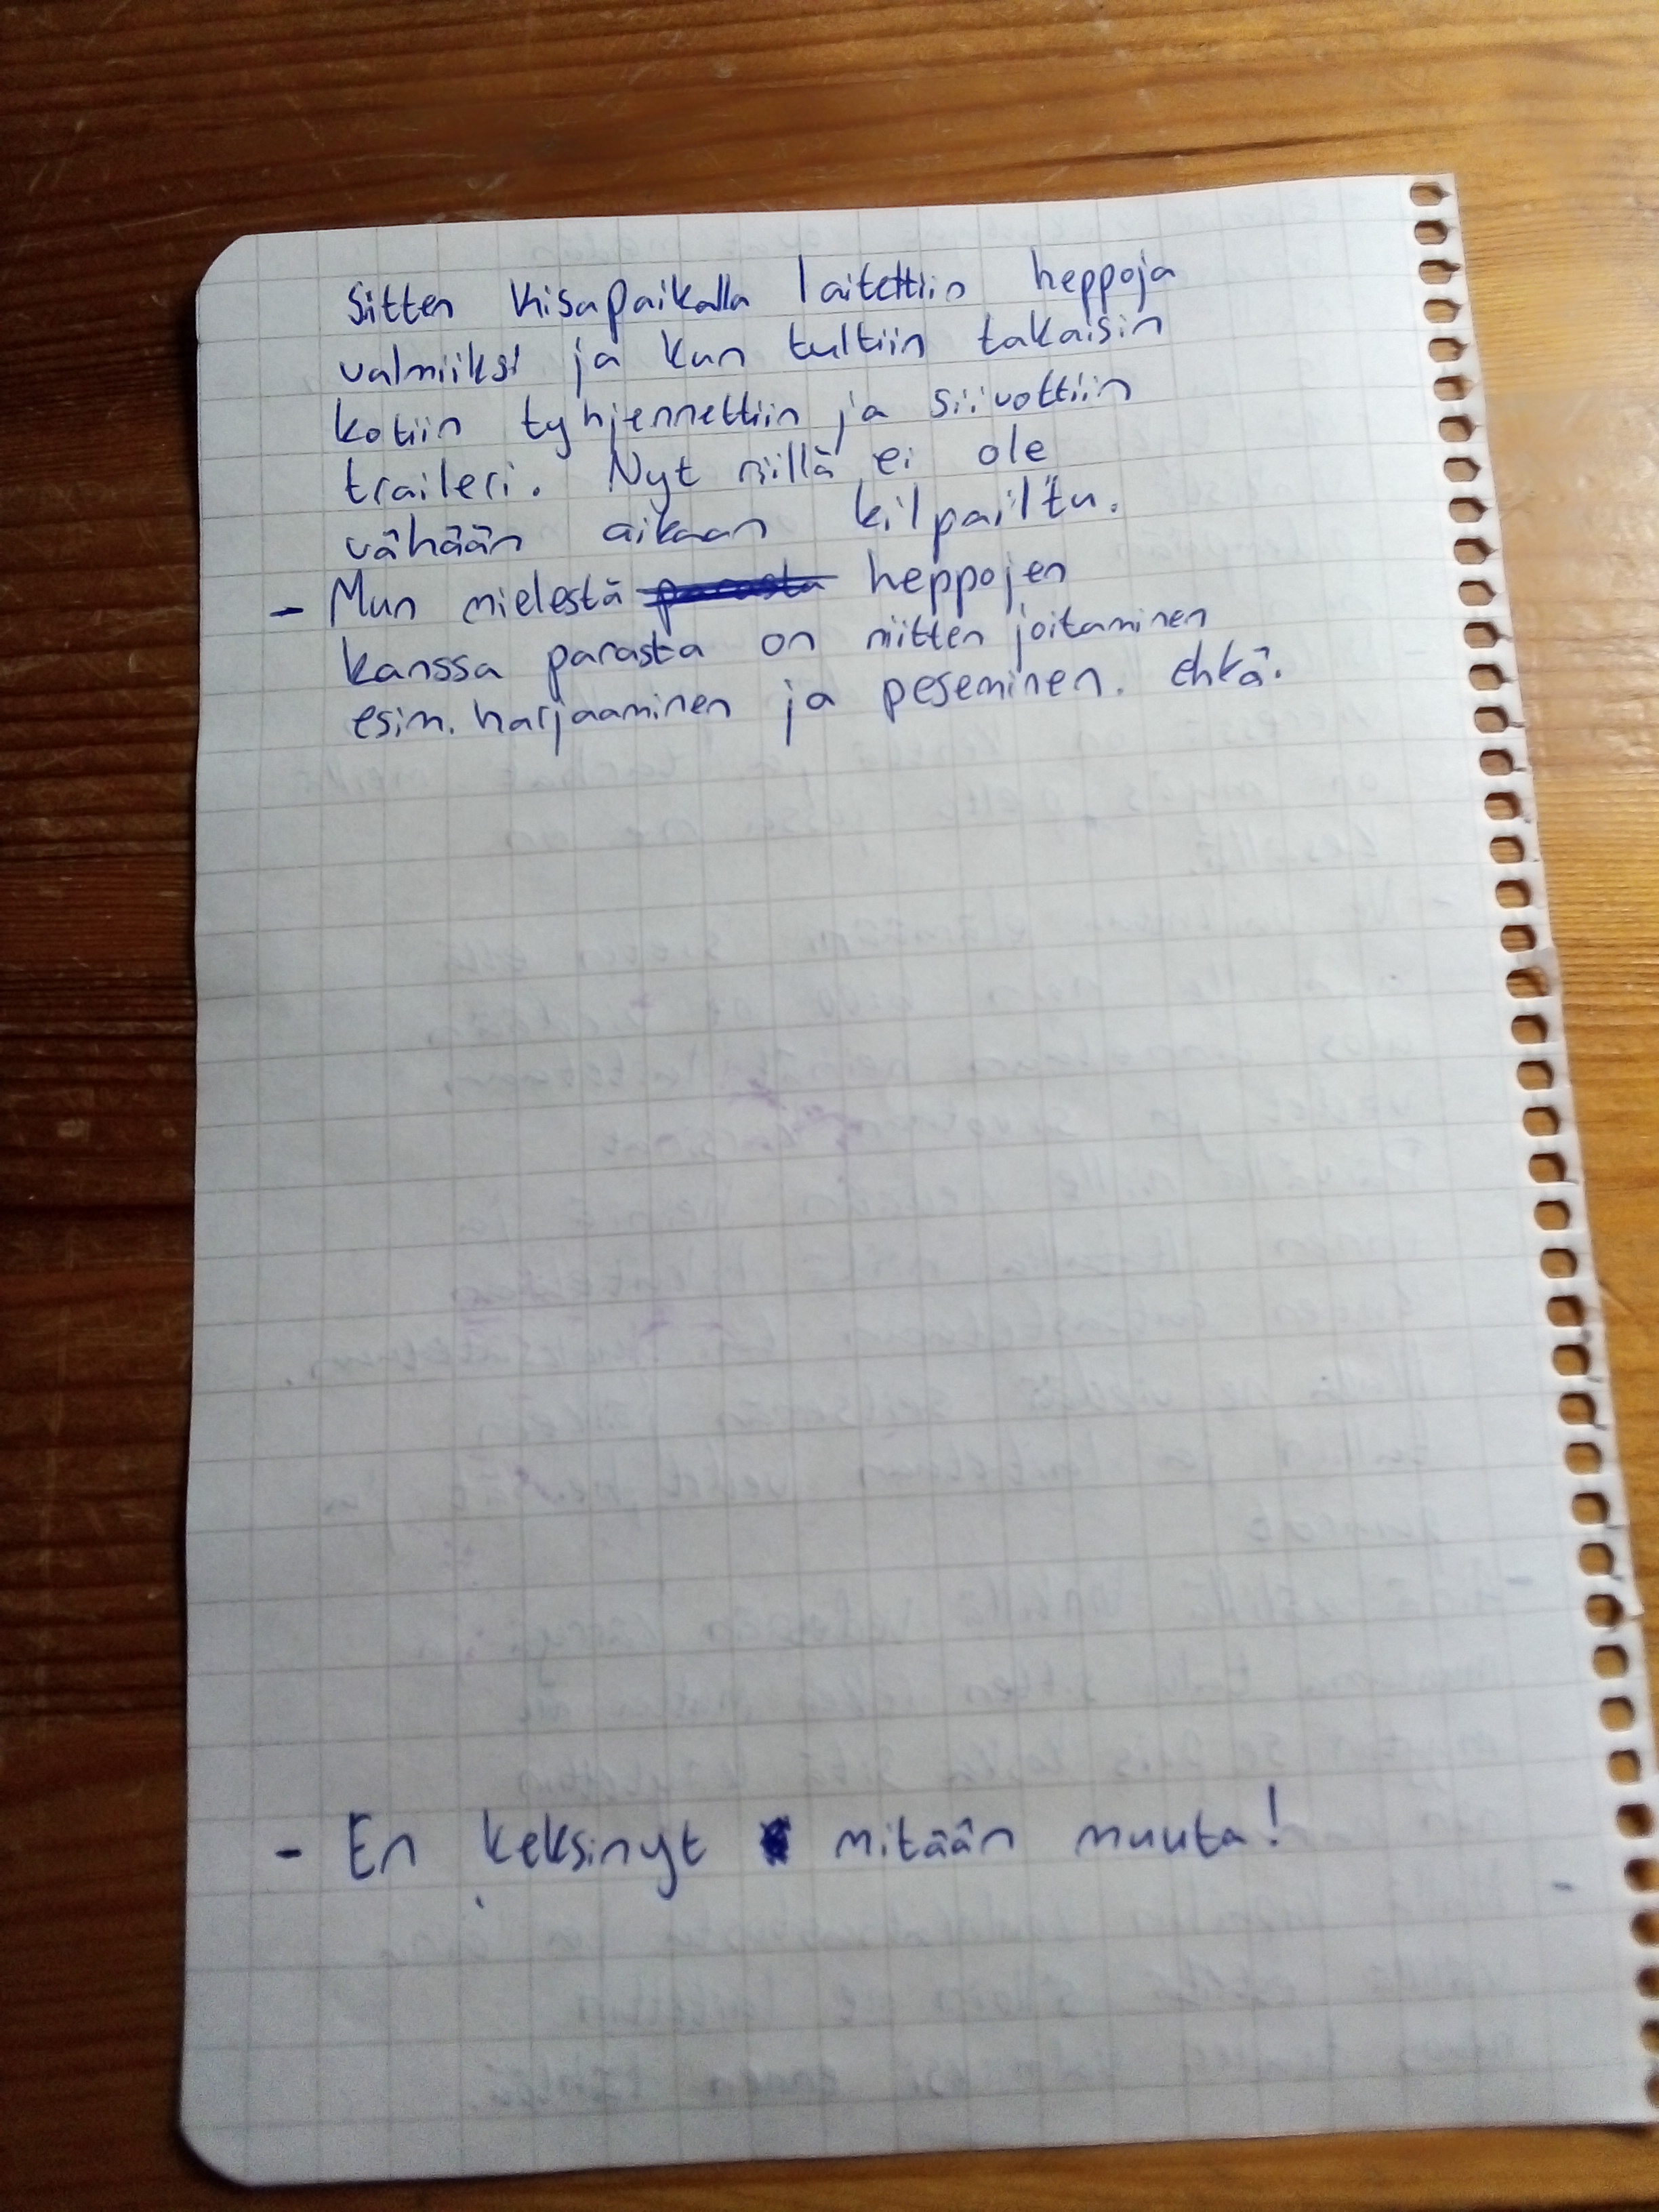 Sitten kisapaikalla laitettiin heppoja
valmiiksi ja kun tultiin takaisin
kotiin tyhjennettiin ja siivottiin
traileri. Nyt niillä ei ole
vähään aikaan kilpailtu.
- Mun mielestä parasta heppojen
kanssa parasta on niitten joitaminen
esim. harjaaminen ja peseminen. ehkä.
- En keksinyt mitään muuta!